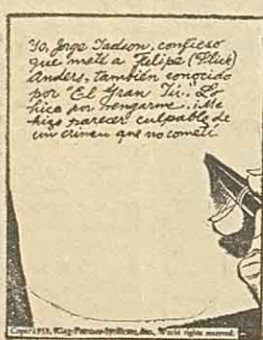 "Yo, Jorge Tadson, confieso
que maté a Felipe (Slick)
Anders, también conocido
por "El Gran Tú". Lo
hice por vengarme. ¡Me
hizo parecer culpable de
un crimen que no cometí
Copr. 1953, King Features Syndicate, Inc., World rights reserved.